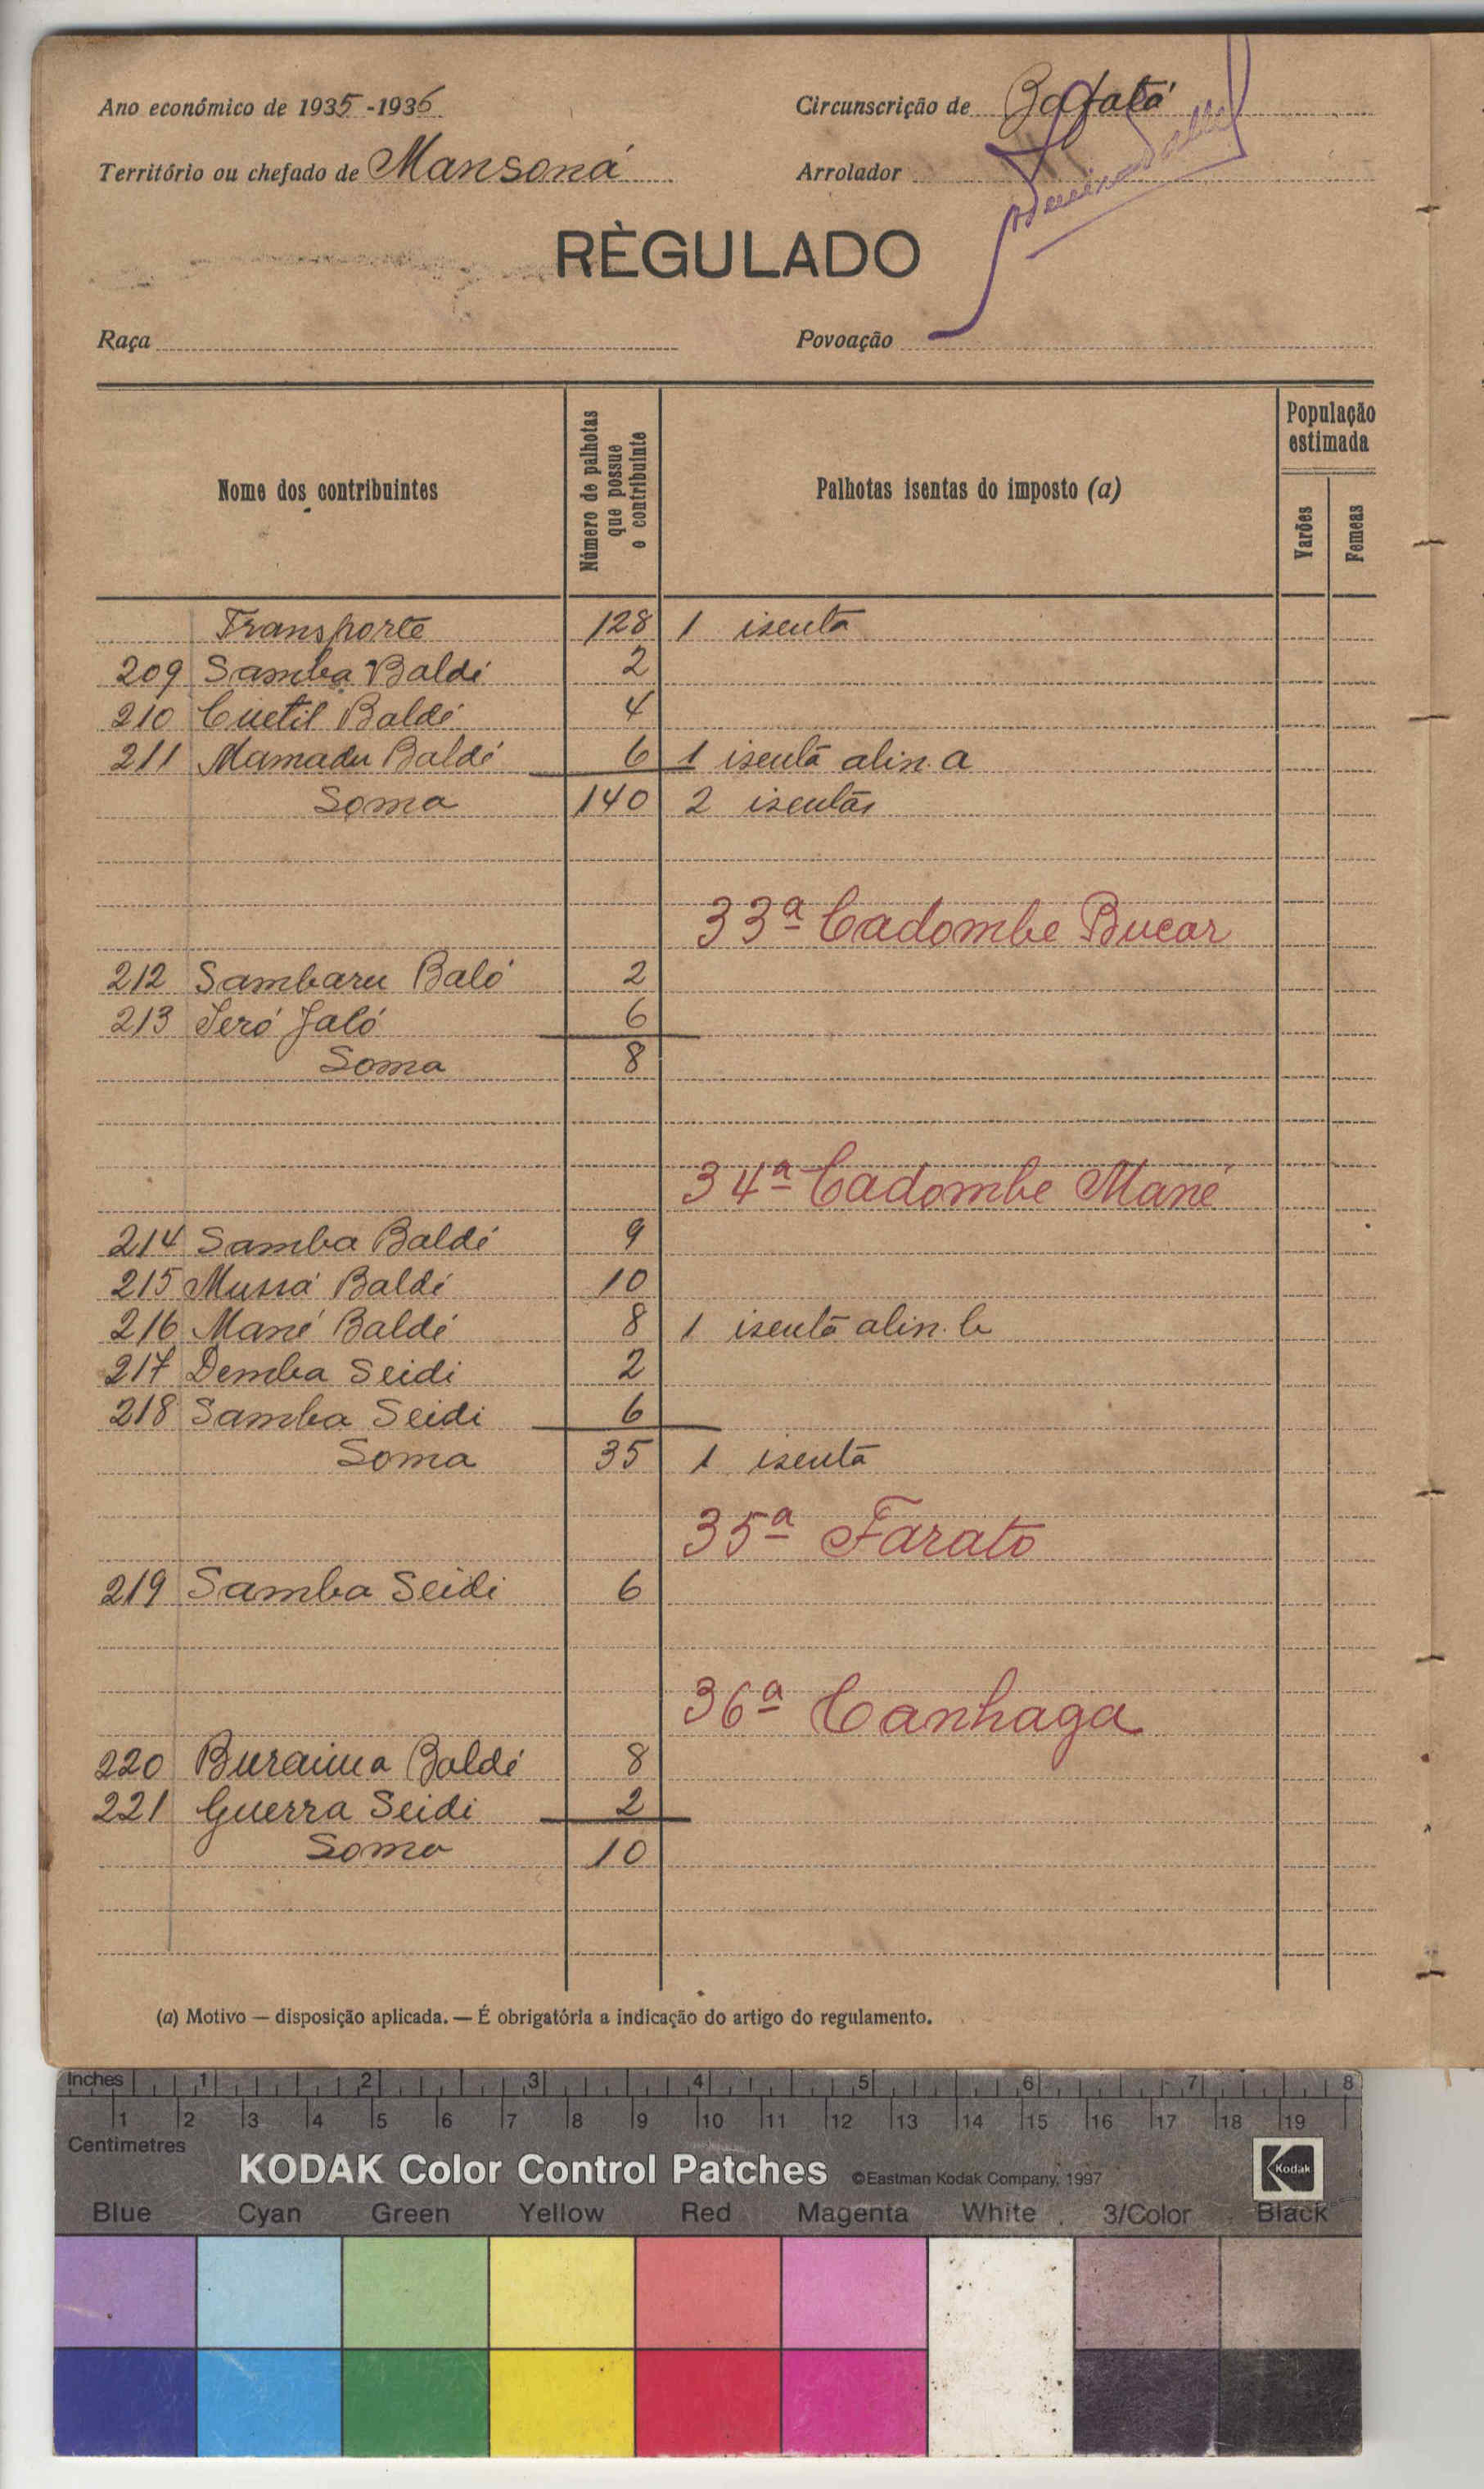 Ano económico de 1935-1936 Circunscrição de Bafatá
Território ou chefado de Mansoná Arrolador
RÈGULADO
Raça Povoação
Nome dos contribuintes Número de palhotas que possue o contribuinte Palhotas isentas do imposto (a) População estimada Varões Femeas
Transporte 128 1 isenta
209 Samba Baldé 2
210 Cuetil Baldé 4
211 Mamadu Baldé 6 1 isenta alin. a
Soma 140 2 isentas
33ª Cadombe Bucar
212 Sambaru Baló 2
213 Seró Jaló 6
Soma 8
34ª Cadombe Mané
214 Samba Baldé 9
215 Mussá Baldé 10
216 Mané Baldé 8 1 isenta alin. b
217 Demba Seidi 2
218 Samba Seidi 6
Soma 35 1 isenta
35ª Farato
219 Samba Seidi 6
36ª Canhaga
220 Buraima Baldé 8
221 Guerra Seidi 2
Soma 10
(a) Motivo — disposição aplicada. — É obrigatória a indicação do artigo do regulamento.
Inches 1 2 3 4 5 6 7 8
1 2 3 4 5 6 7 8 9 10 11 12 13 14 15 16 17 18 19
Centimetres
KODAK Color Control Patches ©Eastman Kodak Company, 1997 Kodak
Blue Cyan Green Yellow Red Magenta White 3/Color Black